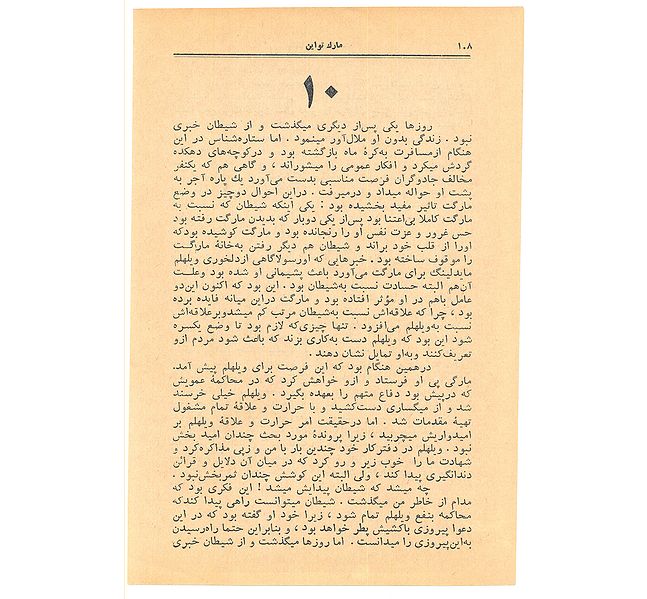 ۱۰۸
مارك تواین
۱۰
روزها یکی پس‌از دیگری میگذشت و از شیطان خبری
نبود . زندگی بدون او ملال‌آور مینمود . اما ستاره‌شناس در این
هنگام ازمسافرت به‌کرهٔ ماه بازگشته بود و درکوچه‌های دهکده
گردش میکرد و افکار عمومی را میشوراند ، و گاهی هم که یکنفر
مخالف جادوگران فرصت مناسبی بدست می‌آورد یك پاره آجر به
پشت او حواله میداد و درمیرفت . دراین احوال دوچیز در وضع
مارگت تاثیر مفید بخشیده بود : یکی اینکه شیطان که نسبت به
مارگت کاملا بی‌اعتنا بود پس‌از یکی دوبار که بدیدن مارگت رفته بود
حس غرور و عزت نفس او را رنجانده بود و مارگت کوشیده بودکه
اورا از قلب خود براند و شیطان هم دیگر رفتن به‌خانهٔ مارگت
را موقوف ساخته بود . خبرهایی که اورسولاگاهی ازدلخوری ویلهلم
مایدلینگ برای مارگت می‌آورد باعث پشیمانی او شده بود وعلت
آن‌هم البته حسادت نسبت به‌شیطان بود . این بود که اکنون این‌دو
عامل باهم در او مؤثر افتاده بود و مارگت دراین میانه فایده برده
بود ، چرا که علاقه‌اش نسبت به‌شیطان مرتب کم میشدوبرعلاقه‌اش
نسبت به‌ویلهلم می‌افزود . تنها چیزی‌که لازم بود تا وضع یکسره
شود این بود که ویلهلم دست به‌کاری بزند که باعث شود مردم ازو
تعریف‌کنند وبه‌او تمایل نشان دهند .
درهمین هنگام بود که این فرصت برای ویلهلم پیش آمد.
مارگی پی او فرستاد و ازو خواهش کرد که در محاکمهٔ عمویش
که درپیش بود دفاع متهم را بعهده بگیرد . ویلهلم خیلی خرسند
شد و از میگساری دست‌کشید و با حرارت و علاقهٔ تمام مشغول
تهیهٔ مقدمات شد . اما درحقیقت امر حرارت و علاقهٔ ویلهلم بر
امیدواریش میچربید ، زیرا پروندهٔ مورد بحث چندان امید بخش
نبود . ویلهلم در دفترکار خود چندین بار با من و زپی مذاکره‌کرد و
شهادت ما را خوب زیر و رو کرد که در میان آن دلایل و قرائن
دندانگیری پیدا کند ، ولی البته این کوشش چندان ثمربخش‌نبود .
چه میشد که شیطان پیدایش میشد ! این فکری بود که
مدام از خاطر من میگذشت . شیطان میتوانست راهی پیدا کندکه
محاکمه بنفع ویلهلم تمام شود ، زیرا خود او گفته بود که در این
دعوا پیروزی باکشیش پطر خواهد بود ، و بنابراین حتما راه‌رسیدن
به‌این‌پیروزی را میدانست . اما روزها میگذشت و از شیطان خبری